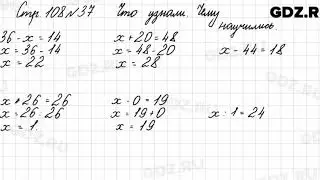 Стр. 108 № 37 Что узнали. Чему научились.
GDZ.R
36 - x = 14
x = 36 - 14
x = 22
x + 20 = 48
x = 48 - 20
x = 28
x - 44 = 18
x · 26 = 26
x = 26 : 26
x = 1.
x - 0 = 19
x = 19 + 0
x = 19
x : 1 = 24